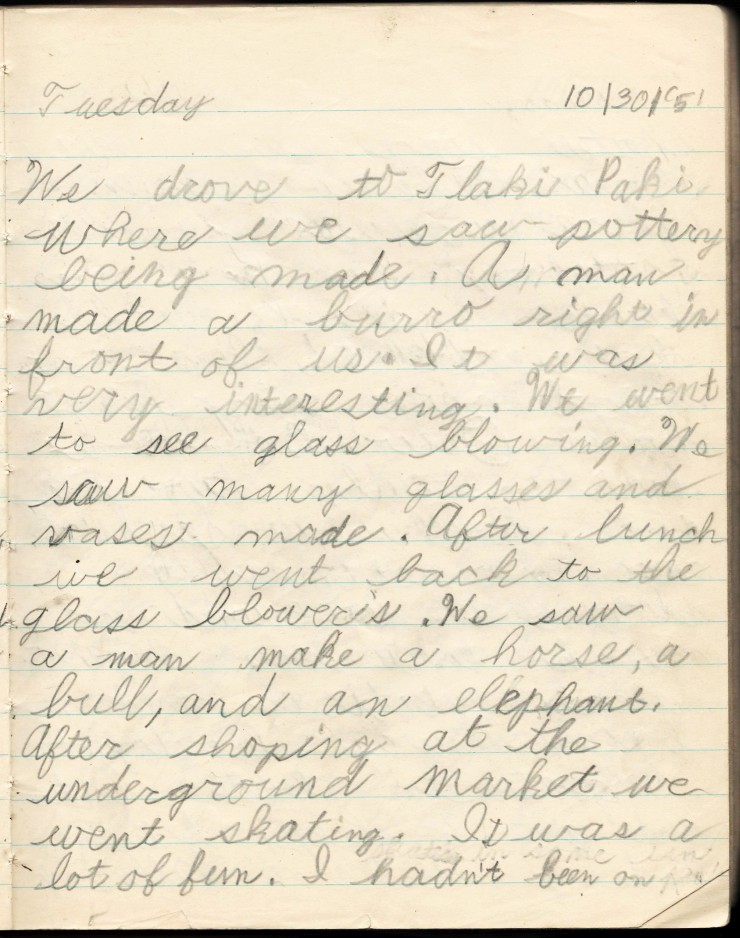 Tuesday 10/30/51
We drove to Tlaki Paki
where we saw pottery
being made. A man
made a burro right in
front of us. It was
very interesting. We went
to see glass blowing. We
saw many glasses and
vases made. After lunch
we went back to the
glass blower's. We saw
a man make a horse, a
bull, and an elephant.
After shoping at the
underground market we
went skating. It was a
lot of fun. I hadn't been on